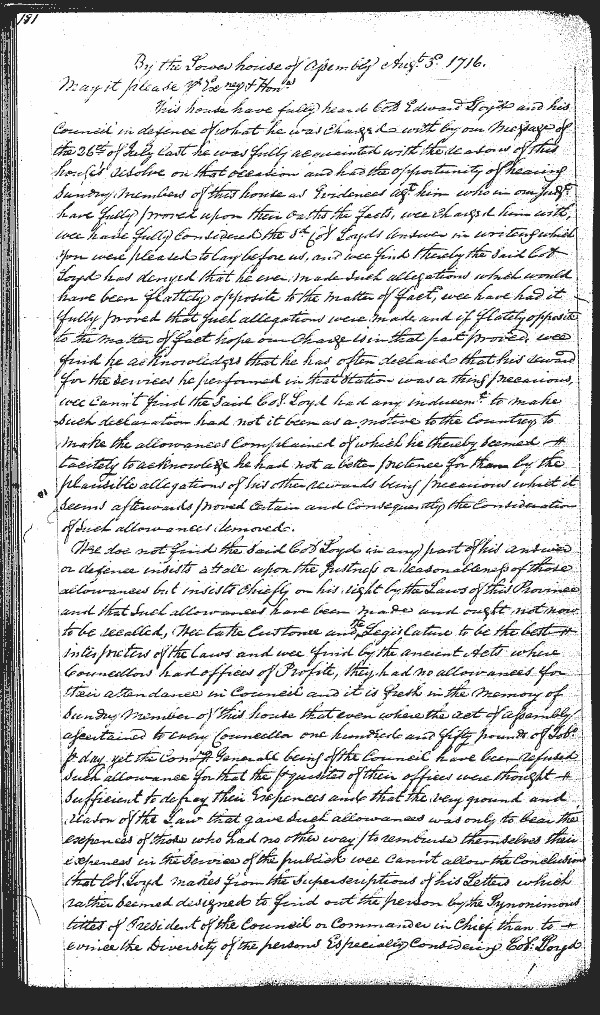 181
By the Lower house of Assembly Augt 3d. 1716.
May it please yr Exncy & Honrs
This house have fully heard Col Edward Loyd and his
Council in defence of what he was Charged with by our Message of
the 26th of July last he was fully acquainted with the reasons of this
houses resolve on that occasion and had the opportunity of hearing
Sundry Members of this house as Evidences agt him who in our Judgt
have fully proved upon their Oaths the facts, wee Charged him with,
wee have fully Considered the sd Col Loyds answer in writing which
you were pleased to lay before us, and wee find thereby the said Col
Loyd has denyed that he ever made such allegations which would
have been flattely opposite to the matter of fact, wee have had it
fully proved that such allegations were made and if flately opposite
to the matter of fact hope our Charge is in that part proved, wee
find he acknowledges that he has often declared that his reward
for the services he performed in that Station was a thing precarious,
wee cannt find the said Col. Loyd had any inducemt. to make
such declaration had not it been as a motive to the Countrey to
make the allowances Complained of which he thereby seemed
tacitely to acknowledge he had not a better pretence for them by the
plausible allegations of his other rewards being precarious which it
seems afterwards proved certain and Consequently the Consideration
of such allowances removed.
Wee doe not find the said Col Loyd in any part of his answer
or defence insists attall upon the Justness or reasonableness of those
allowances but insists chiefly on his right by the Laws of this Province
and that such allowances have been made and ought not now
to be recalled, Wee take Custome and the Legislature to be the best
interpreters of the Laws and wee find by the ancient Acts where
Councellors had offices of Profitt, they had no allowances for
their attendance in Councill and it is fresh in the memory of
Sundry Member of this house that even where the act of assembly
ascertained to every Councellor one hundred and fifty pounds of Tobo
p day yet the Comrs Generall being of the Council have been refused
such allowance for that the pquisites of their offices were thought
sufficient to defray their Expences and that the very ground and
reason of the Law that gave such allowances was only to bear the
expences of those who had no other way to reimburse themselves their
expences in the service of the publick wee cannt allow the Conclusion
that Col. Loyd makes from the Superscriptions of his Letters which
rather seemed designed to find out the person by the Synonimous
titles of President of the Council or Commander in Chief than to
evince the Diversity of the persons Especially Considering Col. Lloyd